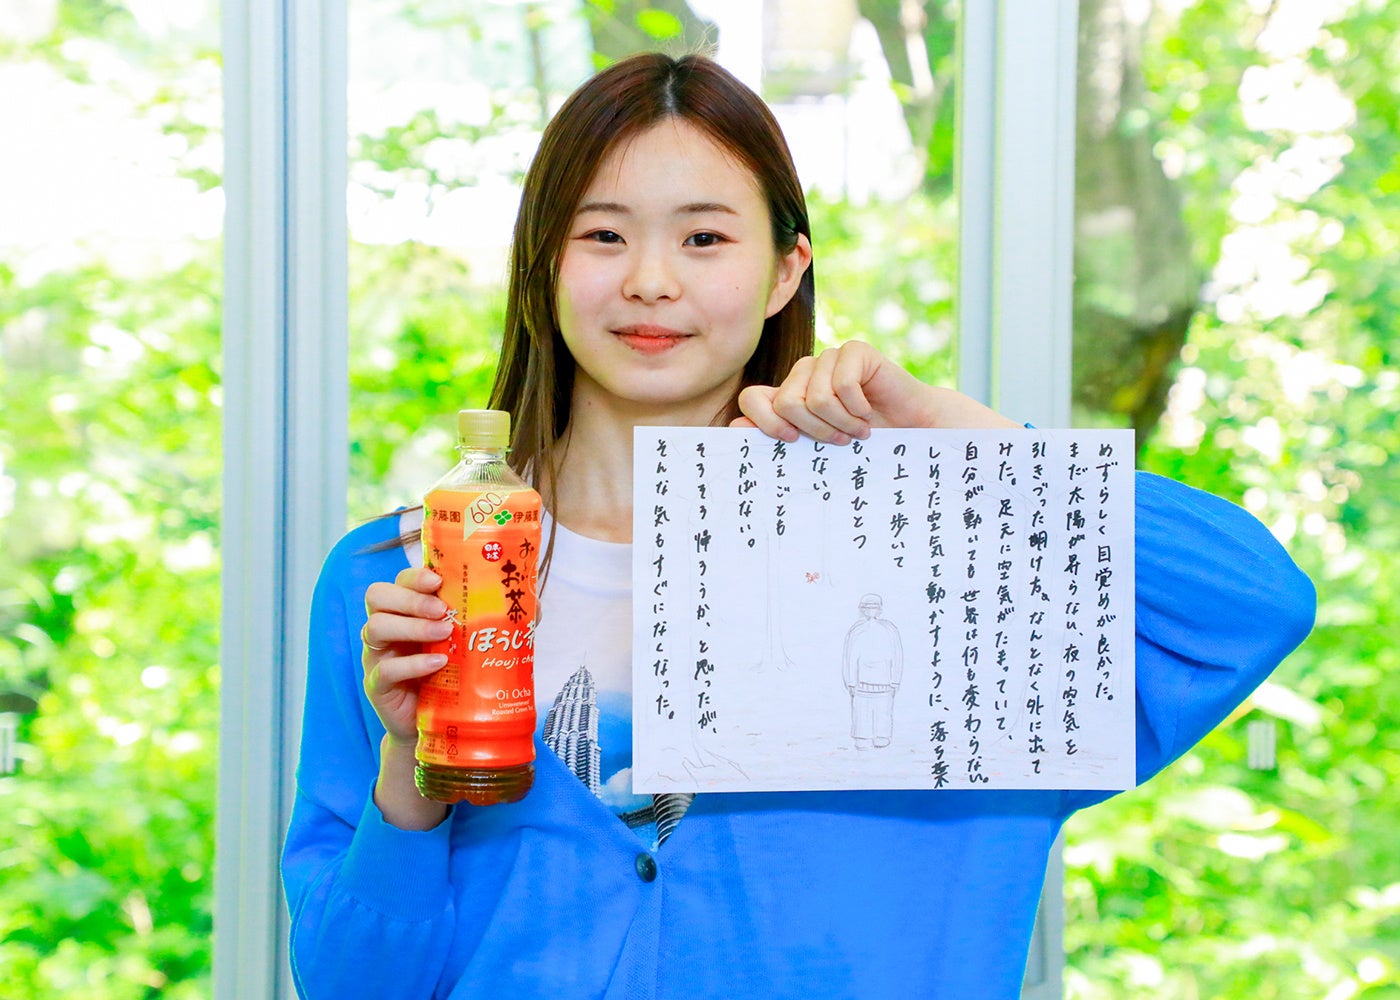 めずらしく目覚めが良かった。
まだ太陽が昇らない、夜の空気を
引きづった明け方。なんとなく外に出て
みた。足元に空気がたまっていて、
自分が動いても世界は何も変わらない。
しめった空気を動かすように、落ち葉
の上を歩いて
も、音ひとつ
しない。
考えごとも
うかばない。
そろそろ帰ろうか、と思ったが、
そんな気もすぐになくなった。
伊藤園
600
伊藤園
日本の
お茶
お〜い
お茶
ほうじ茶
Houji cha
Oi Ocha
Unsweetened
Roasted Green Tea